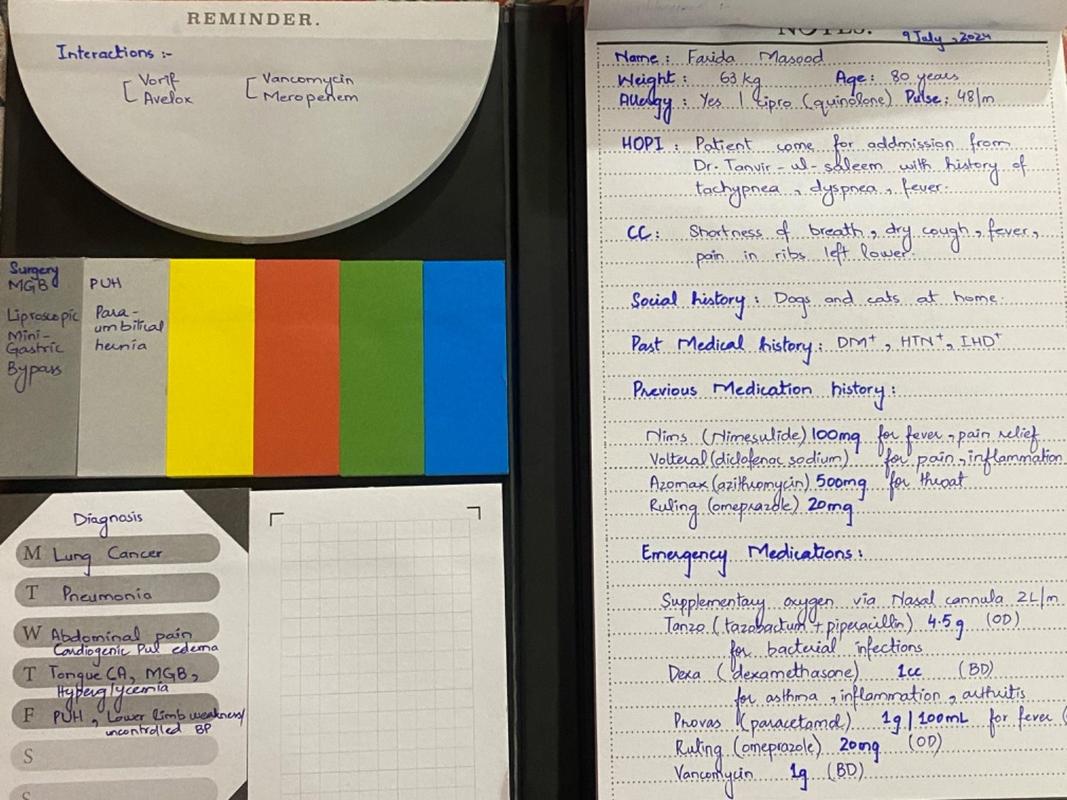 REMINDER.
Interactions :-
Vorif
Avelox
Vancomycin
Meropenem
Surgery
MGB
Liproscopic
Mini-
Gastric
Bypass
PUH
Para-
umbilical
hernia
Diagnosis
M Lung Cancer
T Pneumonia
W Abdominal pain
Cardiogenic Pul edema
T Tongue CA, MGB,
Hyperglycemia
F PUH, Lower limb weakness/
uncontrolled BP
S
S
NOTES.
9 July, 2024
Name : Farida Masood
Weight : 63 kg Age : 80 years
Allergy : Yes | Cipro (quinolone) Pulse : 48/m
HOPI : Patient come for addmission from
Dr. Tanvir-ul-saleem with history of
tachypnea, dyspnea, fever.
CC : Shortness of breath, dry cough, fever,
pain in ribs left lower.
Social history : Dogs and cats at home.
Past Medical history : DM⁺, HTN⁺, IHD⁺
Previous Medication history :
Nims (Nimesulide) 100mg for fever, pain relief
Volteral (diclofenac sodium) for pain, inflammation
Azomax (azithromycin) 500mg for throat
Ruling (omeprazole) 20mg
Emergency Medications :
Supplementary oxygen via Nasal cannula 2L/m
Tanzo (tazobactum + piperacillin) 4.5g (OD)
for bacterial infections
Dexa (dexamethasone) 1cc (BD)
for asthma, inflammation, arthritis
Provas (paracetamol) 1g | 100mL for fever (
Ruling (omeprazole) 20mg (OD)
Vancomycin 1g (BD)